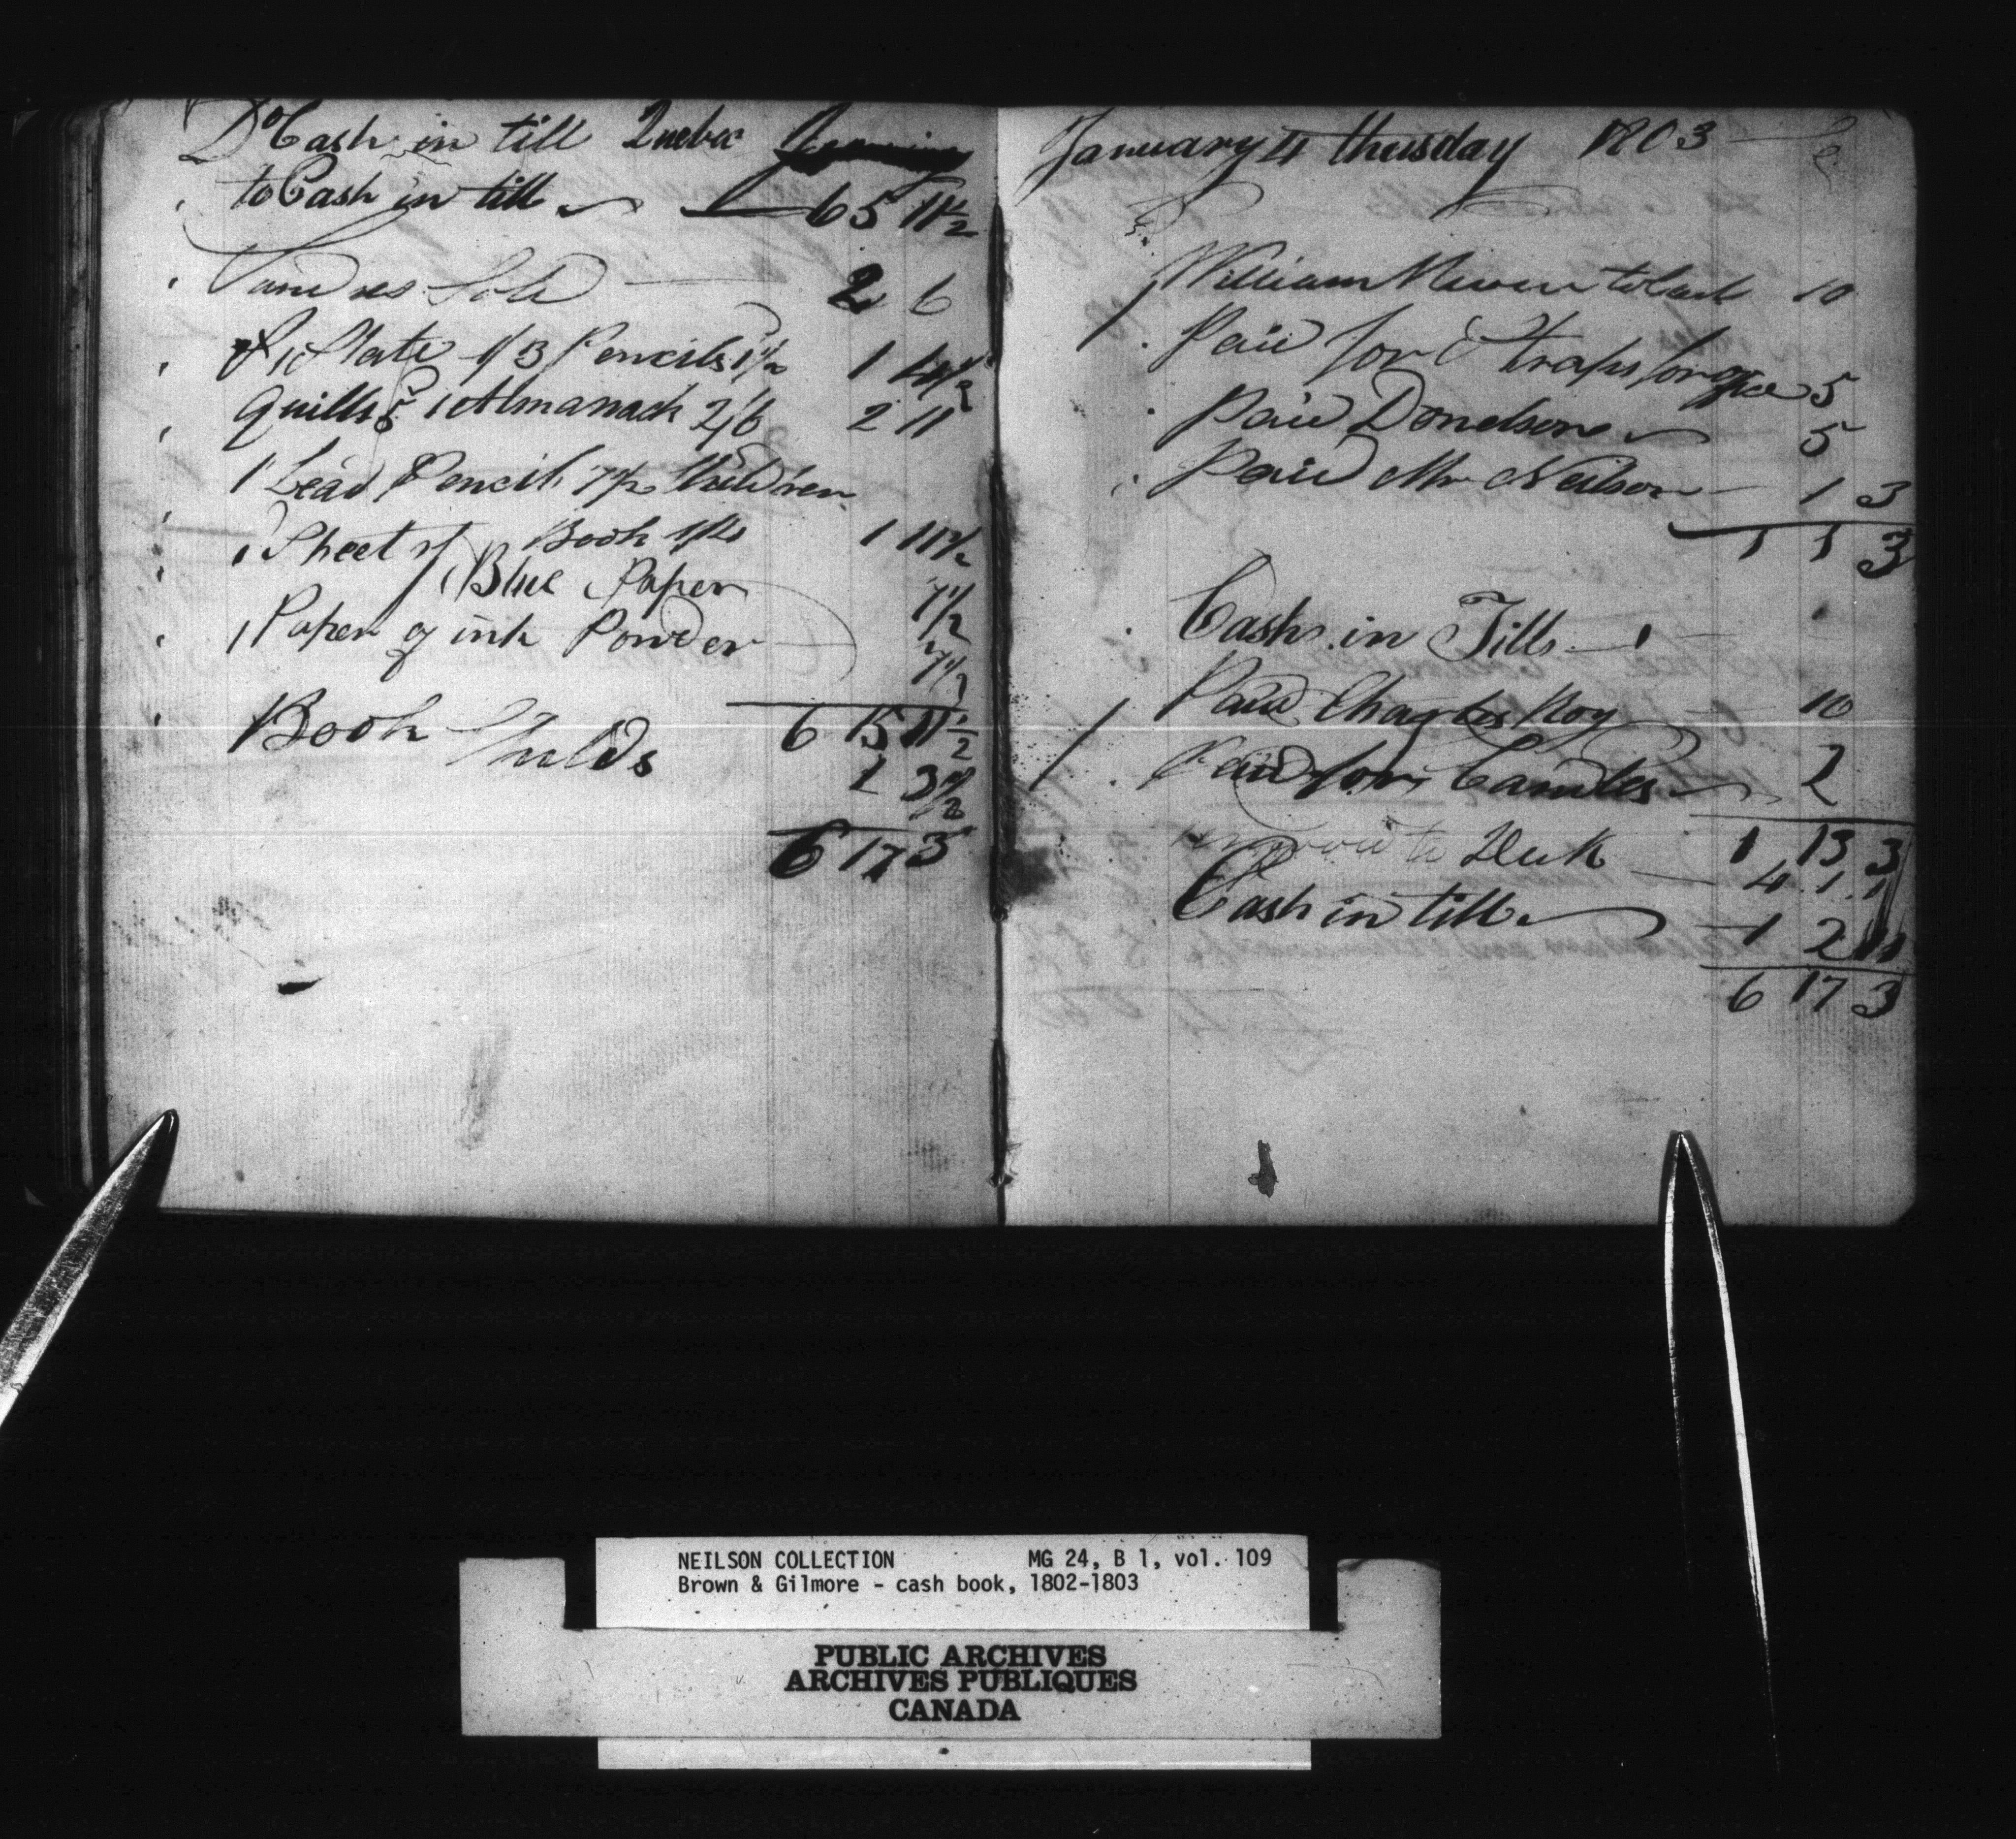 Do Cash in till Quebec
to Cash in till 6 5 11½
Sundries Sold 2 6
1 Slate 1/3 Pencils 1½ 1 4½
Quills 5 1 Almanack 2/6 2 11
1 Lead Pencil 7½ Children
Book 1/4 1 11½
1 Sheet of Blue Paper 7½
1 Paper of ink Powder 7½
6 15 11½
Book 1 3½
6 17 3
January 4 thusday 1803
William to Cash 10
Paid for Straps for office 5
Paid Donelson 5
Paid Mr Neilson 1 3
1 1 3
Cash in Till
Paid Charles Roy 10
Paid for Candles 2
to Desk 1 13 3
4 1 1
Cash in till 1 2 11
6 17 3
NEILSON COLLECTION MG 24, B 1, vol. 109
Brown & Gilmore - cash book, 1802-1803
PUBLIC ARCHIVES
ARCHIVES PUBLIQUES
CANADA